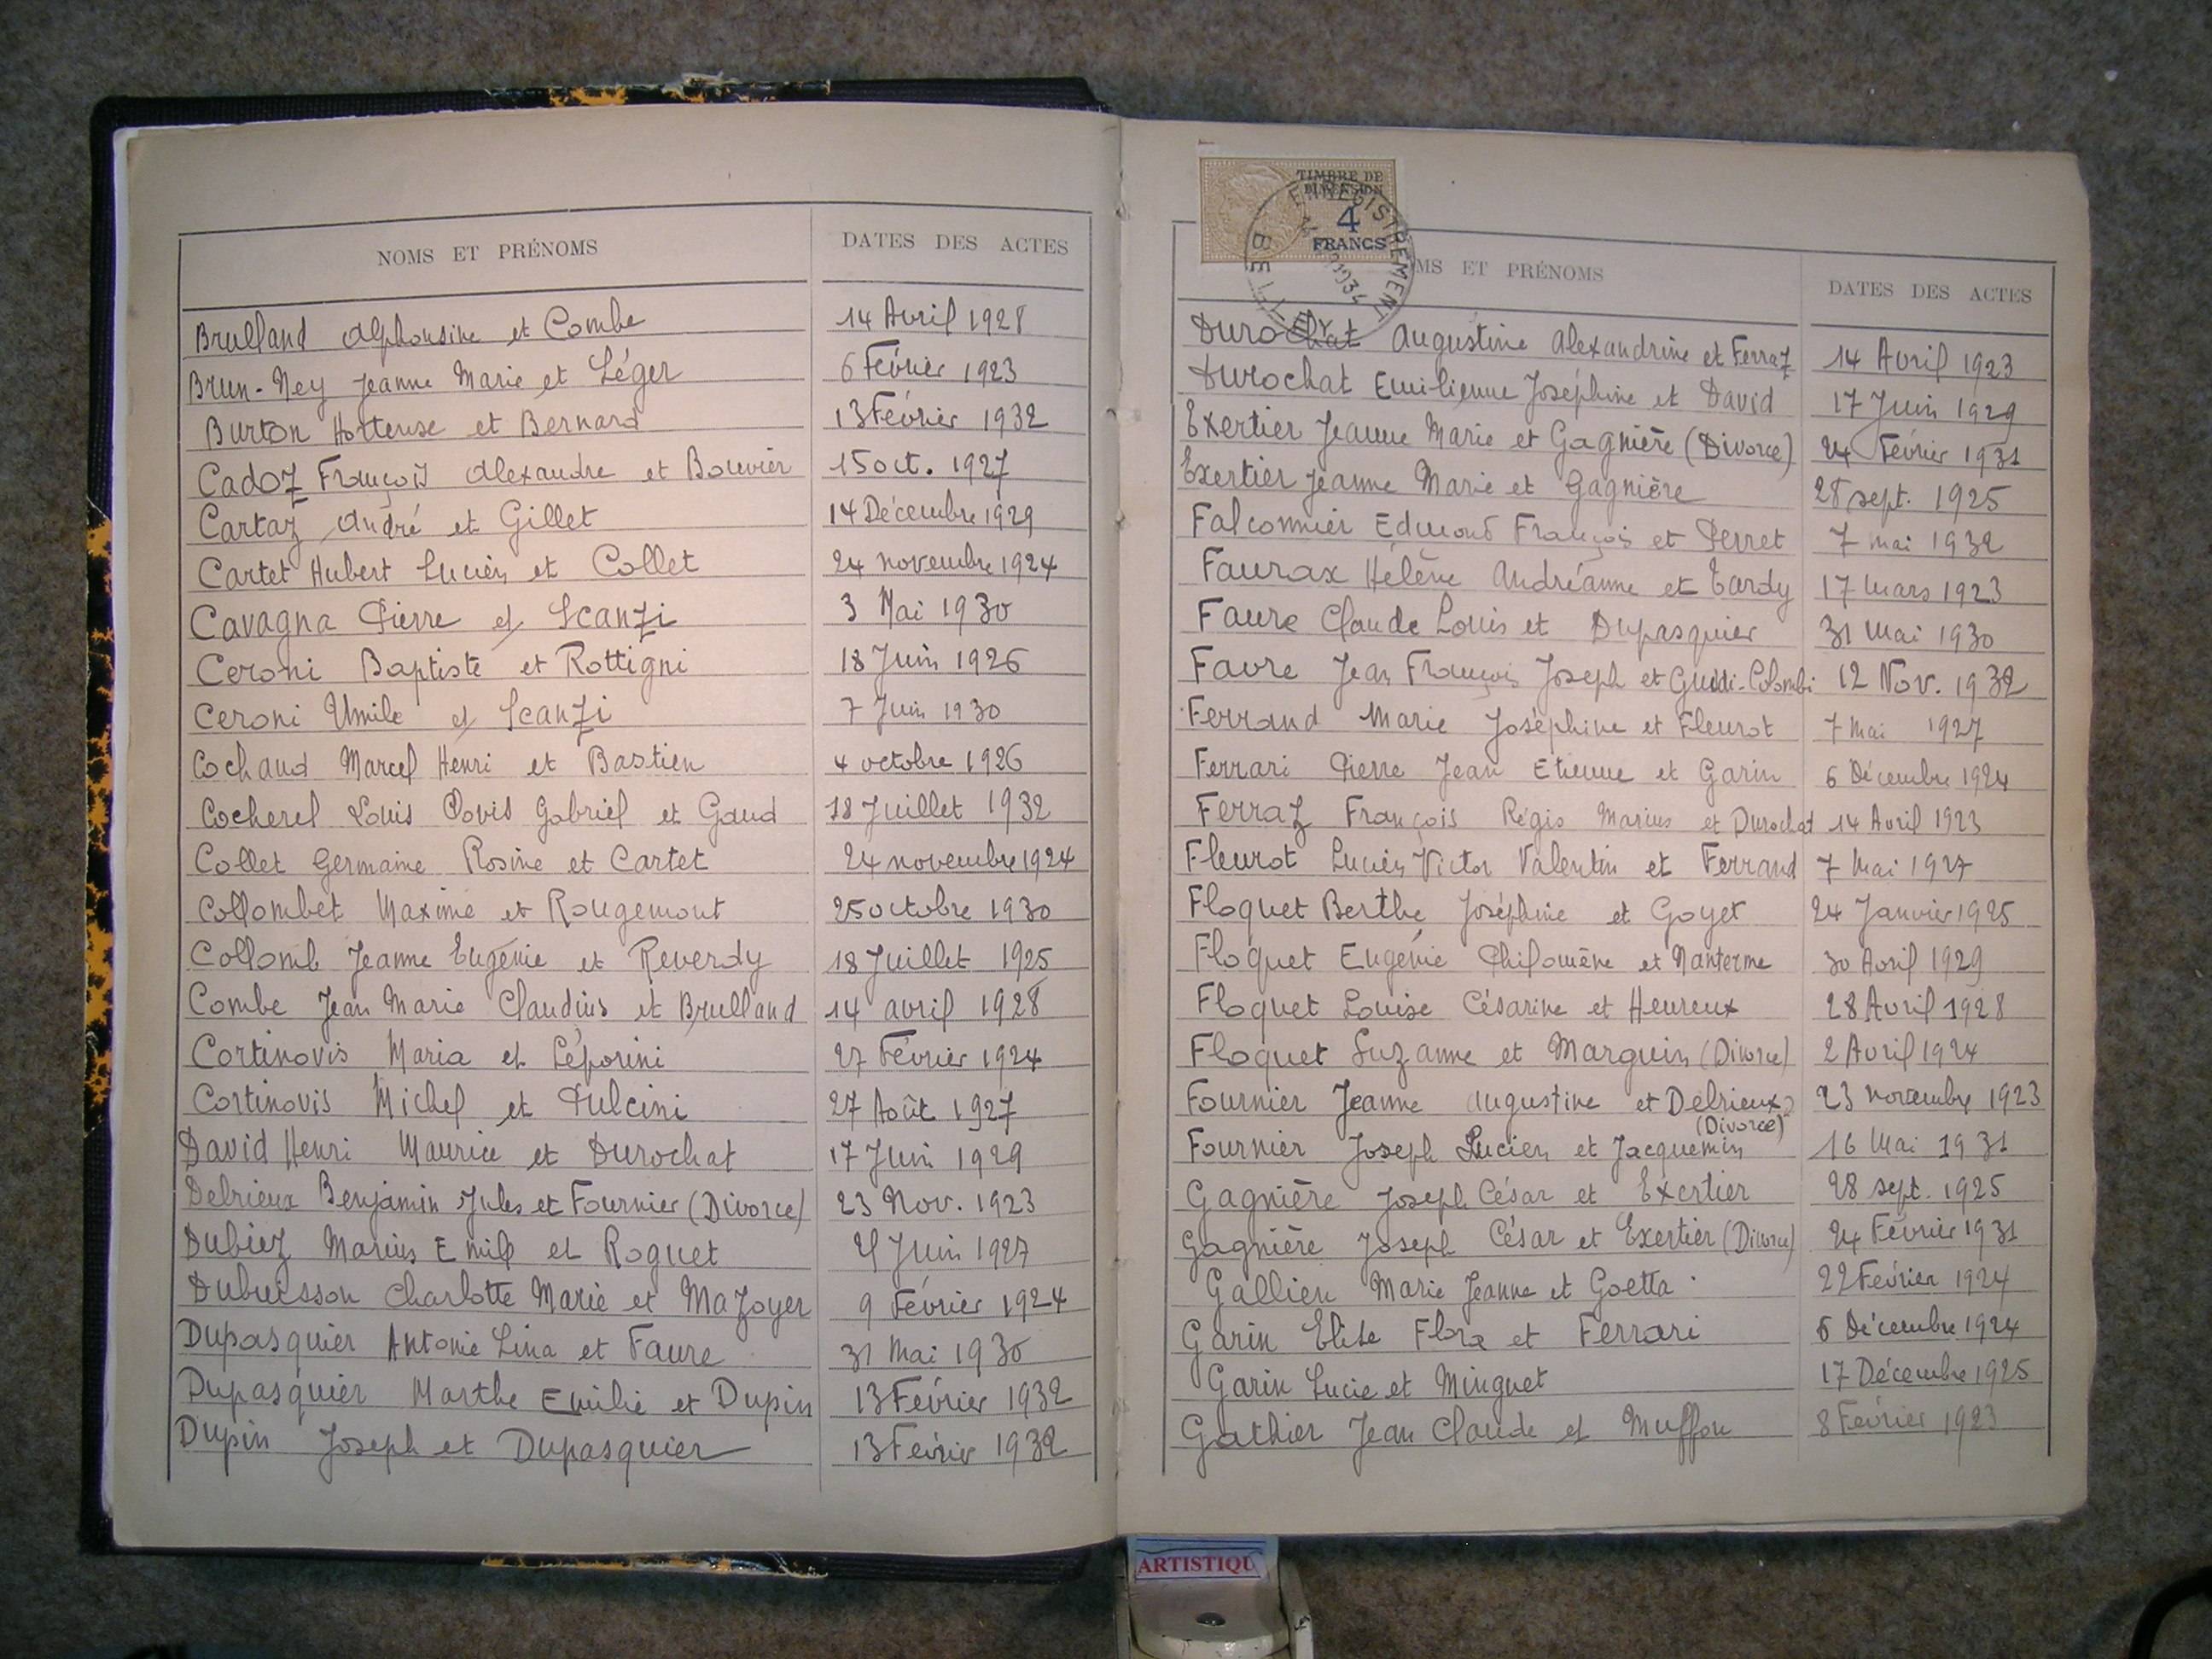 NOMS ET PRÉNOMS DATES DES ACTES
Brulland Alphonsine et Combe 14 Avril 1928
Brun-Ney Jeanne Marie et Léger 6 Février 1923
Burton Hortense et Bernard 13 Février 1932
Cadoz François Alexandre et Bouvier 15 oct. 1927
Cartaz André et Gillet 14 Décembre 1929
Cartet Hubert Lucien et Collet 24 novembre 1924
Cavagna Pierre et Scanzi 3 Mai 1930
Ceroni Baptiste et Rottigni 18 Juin 1926
Ceroni Umile et Scanzi 7 Juin 1930
Cochaud Marcel Henri et Bastien 4 octobre 1926
Cocherel Louis Clovis Gabriel et Gaud 18 Juillet 1932
Collet Germaine Rosine et Cartet 24 novembre 1924
Collombet Maxime et Rougemont 25 octobre 1930
Collomb Jeanne Eugénie et Reverdy 18 Juillet 1925
Combe Jean Marie Claudius et Brulland 14 avril 1928
Cortinovis Maria et Léporini 27 Février 1924
Cortinovis Michel et Pulcini 27 Août 1927
David Henri Maurice et Durochat 17 Juin 1929
Delrieux Benjamin Jules et Fournier (Divorce) 23 Nov. 1923
Dubiez Marius Emile et Roguet Juin 1927
Dubuisson Charlotte Marie et Mazoyer 9 Février 1924
Dupasquier Antonie Lina et Faure 31 Mai 1930
Dupasquier Marthe Emilie et Dupin 13 Février 1932
Dupin Joseph et Dupasquier 13 Février 1932
TIMBRE DE
DIMENSION
4
FRANCS
ENREGISTREMENT
1934
BELLEY
MS ET PRÉNOMS DATES DES ACTES
Durochat Augustine Alexandrine et Ferraz 14 Avril 1923
Durochat Emilienne Joséphine et David 17 Juin 1929
Exertier Jeanne Marie et Gagnière (Divorce) 24 Février 1931
Exertier Jeanne Marie et Gagnière 28 sept. 1925
Falconnier Edmond François et Perret 7 mai 1932
Faurax Hélène Andréanne et Tardy 17 mars 1923
Faure Claude Louis et Dupasquier 31 Mai 1930
Favre Jean François Joseph et Guidi-Colombi 12 Nov. 1932
Ferrand Marie Joséphine et Fleurot 7 Mai 1927
Ferrari Pierre Jean Etienne et Garin 6 Décembre 1924
Ferraz François Régis Marius et Durochat 14 Avril 1923
Fleurot Lucien Victor Valentin et Ferrand 7 Mai 1927
Floquet Berthe Joséphine et Goyet 24 Janvier 1925
Floquet Eugénie Philomène et Nanterme 30 Avril 1929
Floquet Louise Césarine et Heureux 28 Avril 1928
Floquet Suzanne et Marguin (Divorce) 2 Avril 1924
Fournier Jeanne Augustine et Delrieux 23 novembre 1923
(Divorce)
Fournier Joseph Lucien et Jacquemin 16 Mai 1931
Gagnière Joseph César et Exertier 28 sept. 1925
Gagnière Joseph César et Exertier (Divorce) 24 Février 1931
Gallien Marie Jeanne et Goetta 22 Février 1924
Garin Elise Flora et Ferrari 6 Décembre 1924
Garin Lucie et Minguet 17 Décembre 1925
Gathier Jean Claude et Muffon 8 Février 1923
ARTISTIQU